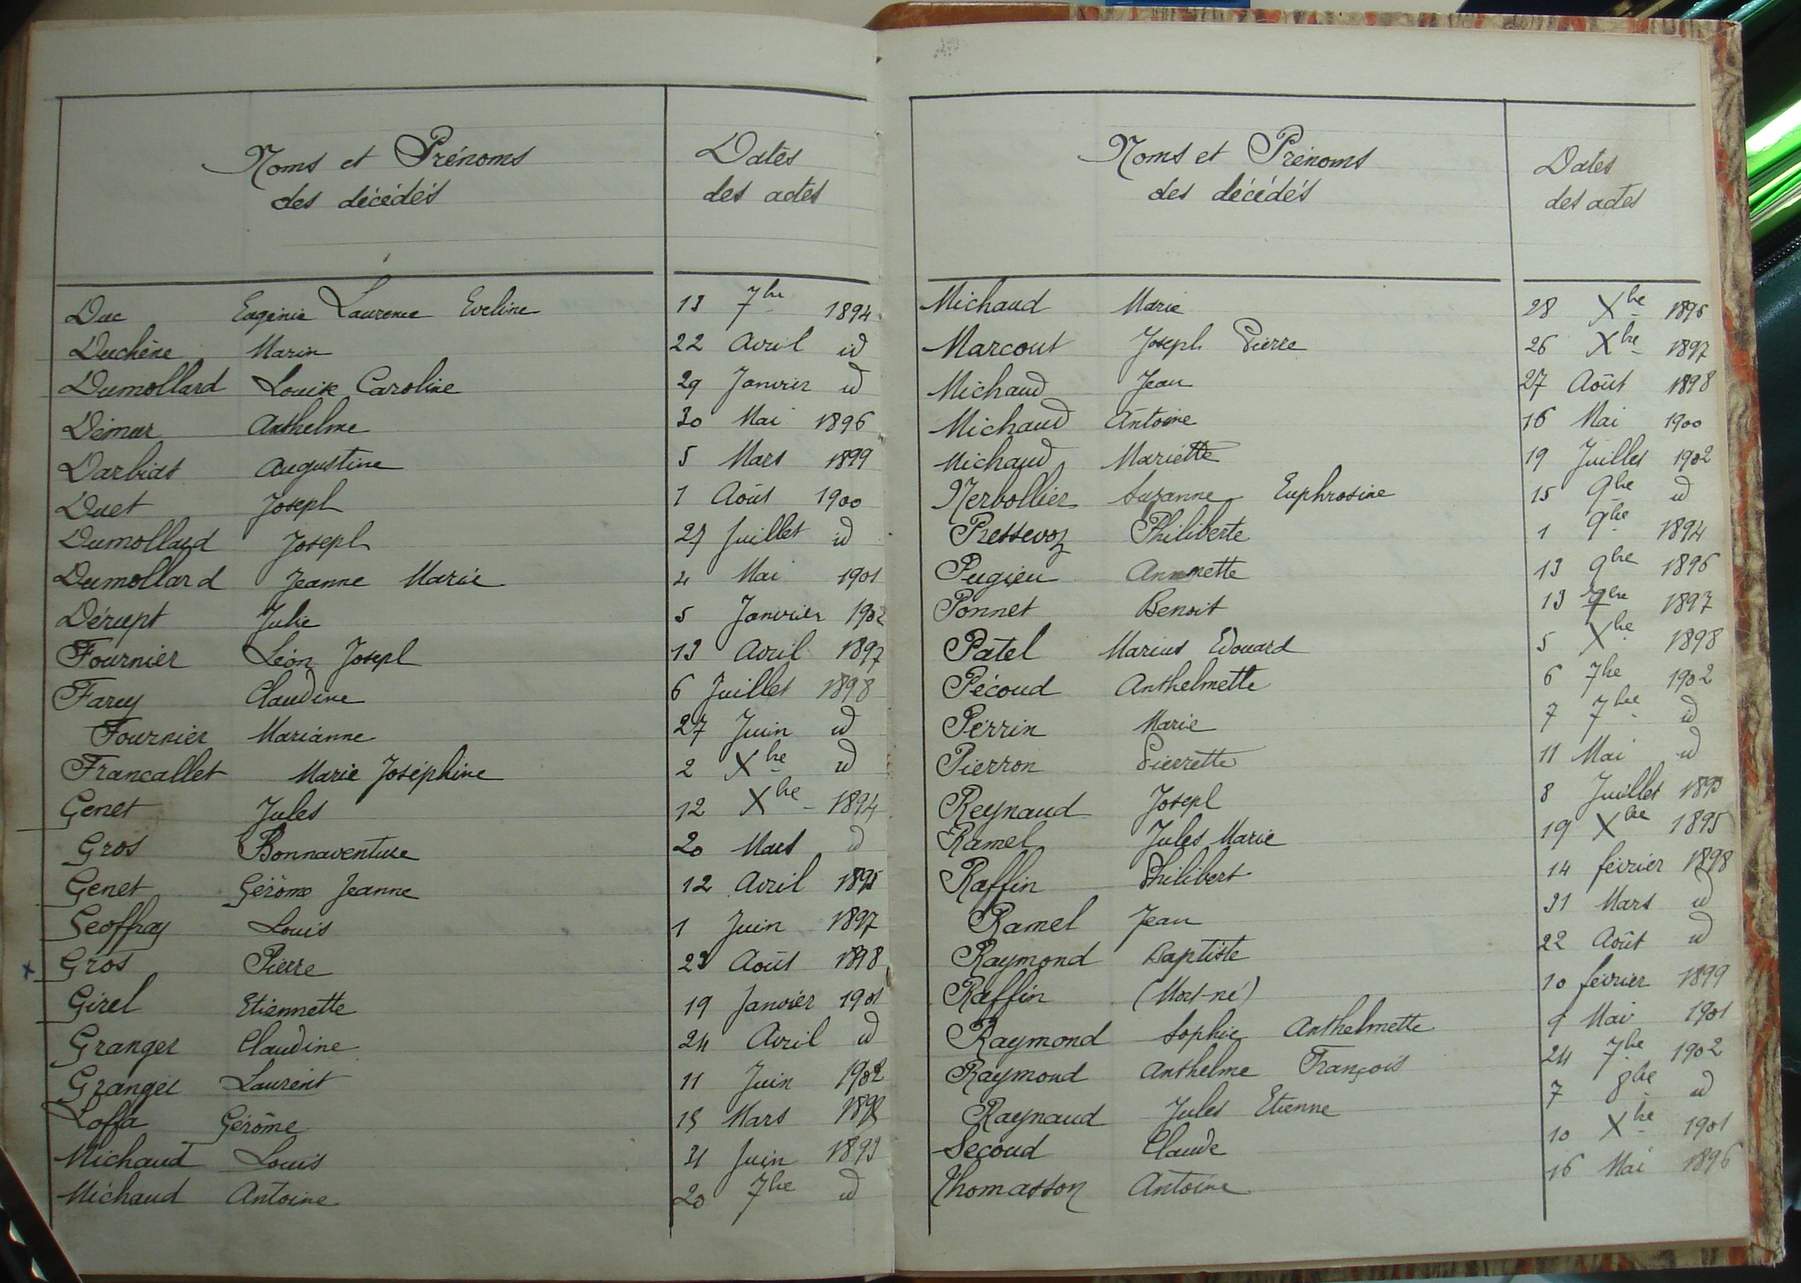 Noms et Prénoms
des décédés
Dates
des actes
Duc Eugénie Laurence Eveline 13 7bre 1894
Duchêne Marin 22 Avril id
Dumollard Louise Caroline 29 Janvier id
Démar Anthelme 30 Mai 1896
Darbiat Augustine 5 Mars 1899
Duet Joseph 1 Août 1900
Dumollard Joseph 27 Juillet id
Dumollard Jeanne Marie 4 Mai 1901
Dérupt Julie 5 Janvier 1902
Fournier Léon Joseph 13 Avril 1897
Farcy Claudine 6 Juillet 1898
Fournier Marianne 27 Juin id
Francallet Marie Joséphine 2 Xbre id
Genet Jules 12 Xbre 1894
Gros Bonnaventure 20 Mars id
Genet Gérôme Jeanne 12 Avril 1895
Geoffray Louis 1 Juin 1897
Gros Pierre 23 Août 1898
Girel Etiennette 19 Janvier 1901
Granger Claudine 24 Avril id
Granger Laurent 11 Juin 1902
Loffa Gérôme 15 Mars
Michaud Louis Juin 1893
Michaud Antoine 20 7bre id
Noms et Prénoms
des décédés
Dates
des actes
Michaud Marie 28 Xbre 1895
Marcout Joseph Pierre 26 Xbre 1897
Michaud Jean 27 Août 1898
Michaud Antoine 16 Mai 1900
Michaud Mariette 19 Juillet 1902
Nerbollier Suzanne Euphrosine 15 9bre id
Pressevoz Philiberte 1 9bre 1894
Pugieu Annette 13 9bre 1896
Ponnet Benoit 13 9bre 1897
Patel Marius Edouard 5 Xbre 1898
Pécoud Anthelmette 6 7bre 1902
Perrin Marie 7 7bre id
Pierron Pierrette 11 Mai id
Reynaud Joseph 8 Juillet 1893
Ramel Jules Marie 19 Xbre 1895
Raffin Philibert 14 février 1898
Ramel Jean 31 Mars id
Raymond Baptiste 22 Août id
Raffin (Mort-né) 10 février 1899
Raymond Sophie Anthelmette 9 Mai 1901
Raymond Anthelme François 24 7bre 1902
Raynaud Jules Etienne 7 8bre id
Secoud Claude 10 Xbre 1901
Thomasson Antoine 16 Mai 1896